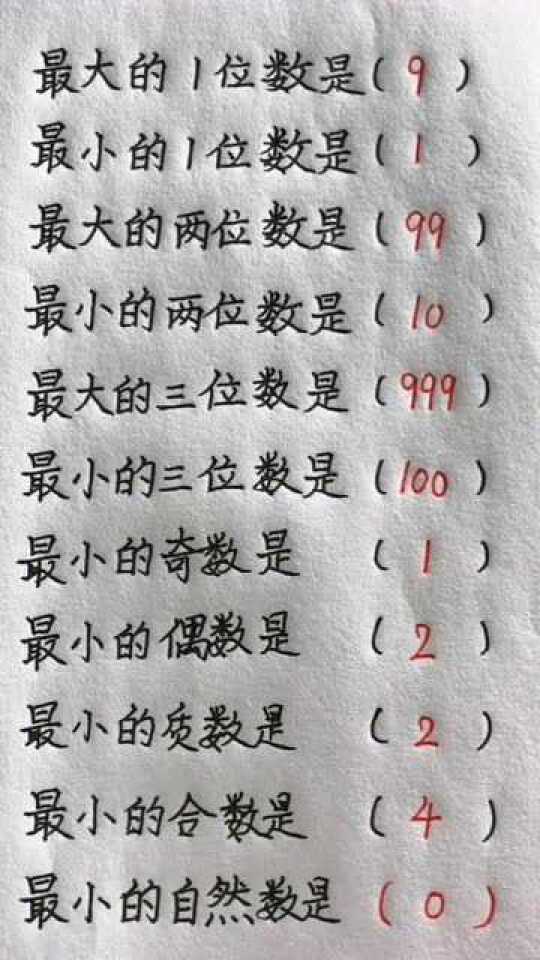 最大的1位数是(9)
最小的1位数是(1)
最大的两位数是(99)
最小的两位数是(10)
最大的三位数是(999)
最小的三位数是(100)
最小的奇数是(1)
最小的偶数是(2)
最小的质数是(2)
最小的合数是(4)
最小的自然数是(0)